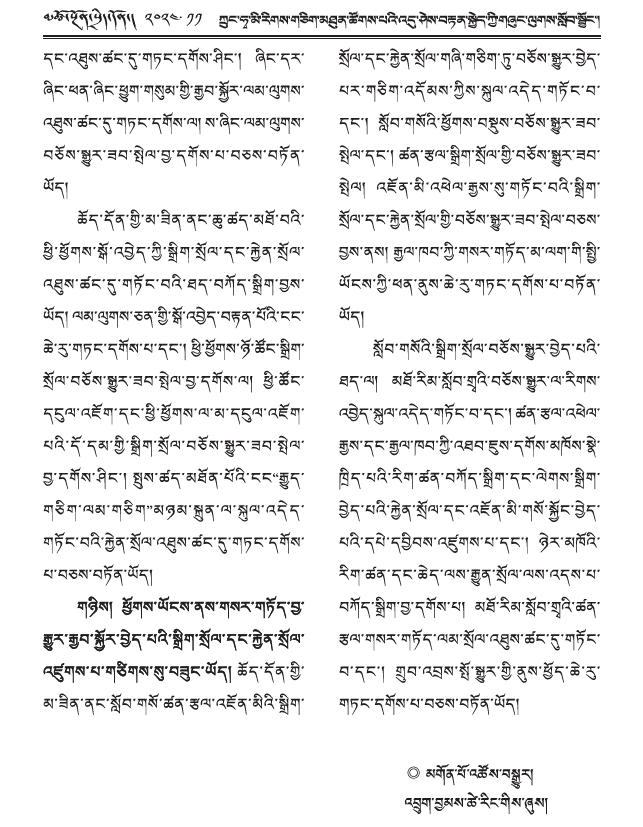 ༢༠༢༤.༡༡ ཀྲུང་ཧྭ་མི་རིགས་གཅིག་མཐུན་ཚོགས་པའི་འདུ་ཤེས་བརྟན་སྐྱེད་ཀྱི་གཞུང་ལུགས་སློབ་སྦྱོང་།
དང་འཐུས་ཚང་དུ་གཏང་དགོས་ཤིང་། ཞིང་དར་
ཞིང་ཕན་ཞིང་ཕྱུག་གསུམ་གྱི་རྒྱབ་སྐྱོར་ལམ་ལུགས་
འཐུས་ཚང་དུ་གཏང་དགོས་ལ། ས་ཞིང་ལམ་ལུགས་
བཅོས་སྒྱུར་ཟབ་སྤེལ་བྱ་དགོས་པ་བཅས་བཏོན་
ཡོད།
ཆོད་དོན་གྱི་མ་ཟིན་ནང་ཆུ་ཚད་མཐོ་བའི་
ཕྱི་ཕྱོགས་སྒོ་འབྱེད་ཀྱི་སྒྲིག་སྲོལ་དང་རྐྱེན་སྲོལ་
འཐུས་ཚང་དུ་གཏོང་བའི་ཐད་བཀོད་སྒྲིག་བྱས་
ཡོད། ལམ་ལུགས་ཅན་གྱི་སྒོ་འབྱེད་བརྟན་པོའི་ངང་
ཆེ་རུ་གཏང་དགོས་པ་དང་། ཕྱི་ཕྱོགས་ཉོ་ཚོང་སྒྲིག་
སྲོལ་བཅོས་སྒྱུར་ཟབ་སྤེལ་བྱ་དགོས་ལ། ཕྱི་ཚོང་
དངུལ་འཇོག་དང་ཕྱི་ཕྱོགས་ལ་མ་དངུལ་འཇོག་
པའི་དོ་དམ་གྱི་སྒྲིག་སྲོལ་བཅོས་སྒྱུར་ཟབ་སྤེལ་
བྱ་དགོས་ཤིང་། སྤུས་ཚད་མཐོན་པོའི་ངང་“རྒྱུད་
གཅིག་ལམ་གཅིག”མཉམ་སྐྲུན་ལ་སྐུལ་འདེད་
གཏོང་བའི་རྐྱེན་སྲོལ་འཐུས་ཚང་དུ་གཏང་དགོས་
པ་བཅས་བཏོན་ཡོད།
གཉིས། ཕྱོགས་ཡོངས་ནས་གསར་གཏོད་བྱ་
རྒྱུར་རྒྱབ་སྐྱོར་བྱེད་པའི་སྒྲིག་སྲོལ་དང་རྐྱེན་སྲོལ་
འཛུགས་པ་གཙིགས་སུ་བཟུང་ཡོད། ཆོད་དོན་གྱི་
མ་ཟིན་ནང་སློབ་གསོ་ཚན་རྩལ་འཇོན་མིའི་སྒྲིག་
སྲོལ་དང་རྐྱེན་སྲོལ་གཞི་གཅིག་ཏུ་བཅོས་སྒྱུར་བྱེད་
པར་གཅིག་འདོམས་ཀྱིས་སྐུལ་འདེད་གཏོང་བ་
དང་། སློབ་གསོའི་ཕྱོགས་བསྡུས་བཅོས་སྒྱུར་ཟབ་
སྤེལ་དང་། ཚན་རྩལ་སྒྲིག་སྲོལ་གྱི་བཅོས་སྒྱུར་ཟབ་
སྤེལ། འཇོན་མི་འཕེལ་རྒྱས་སུ་གཏོང་བའི་སྒྲིག་
སྲོལ་དང་རྐྱེན་སྲོལ་གྱི་བཅོས་སྒྱུར་ཟབ་སྤེལ་བཅས་
བྱས་ནས། རྒྱལ་ཁབ་ཀྱི་གསར་གཏོད་མ་ལག་གི་སྤྱི་
ཡོངས་ཀྱི་ཕན་ནུས་ཆེ་རུ་གཏང་དགོས་པ་བཏོན་
ཡོད།
སློབ་གསོའི་སྒྲིག་སྲོལ་བཅོས་སྒྱུར་བྱེད་པའི་
ཐད་ལ། མཐོ་རིམ་སློབ་གྲྭའི་བཅོས་སྒྱུར་ལ་རིགས་
འབྱེད་སྐུལ་འདེད་གཏོང་བ་དང་། ཚན་རྩལ་འཕེལ་
རྒྱས་དང་རྒྱལ་ཁབ་ཀྱི་འཐབ་ཇུས་དགོས་མཁོས་སྣེ་
ཁྲིད་པའི་རིག་ཚན་བཀོད་སྒྲིག་དང་ལེགས་སྒྲིག་
བྱེད་པའི་རྐྱེན་སྲོལ་དང་འཇོན་མི་གསོ་སྐྱོང་བྱེད་
པའི་དཔེ་དབྱིབས་འཛུགས་པ་དང་། ཉེར་མཁོའི་
རིག་ཚན་དང་ཆེད་ལས་རྒྱུན་སྲོལ་ལས་འདས་པ་
བཀོད་སྒྲིག་བྱ་དགོས་པ། མཐོ་རིམ་སློབ་གྲྭའི་ཚན་
རྩལ་གསར་གཏོད་ལམ་སྲོལ་འཐུས་ཚང་དུ་གཏོང་
བ་དང་། གྲུབ་འབྲས་སྤོ་སྒྱུར་གྱི་ནུས་ཕྱོད་ཆེ་རུ་
གཏང་དགོས་པ་བཅས་བཏོན་ཡོད།
◎ མགོན་པོ་འཚོས་བསྒྱུར།
འབྲུག་བྱམས་ཚེ་རིང་གིས་ཞུས།